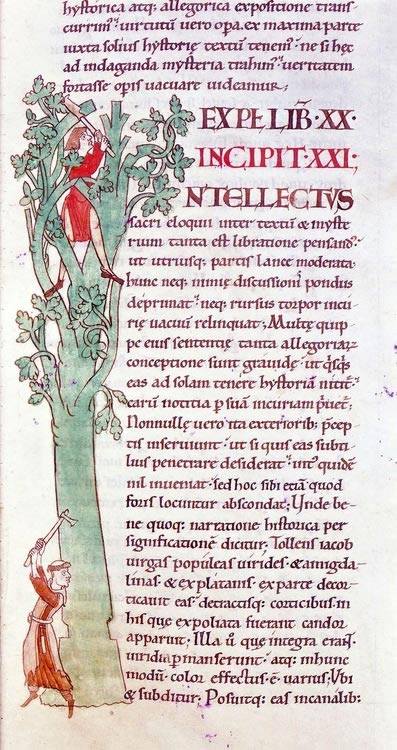 hystorica atq; allegorica expositione trans
currim' virtutũ vero opa. ex maxima parte
iuxta solius hystorię textũ tenem'. ne si hęc
ad indaganda mysteria trahim' veritatem
fortasse opis vacuare videamur;
EXPƚ LIB̃·XX·
INCIPIT·XXI;
NTELLECTVS
sacri eloqui inter textũ & myste
rium tanta est libratione pensand'
ut utriusq; partis lance moderata
hunc neq; nimię discussioni pondus
deprimat neq; rursus torpor incu
rię vacuũ relinquat; Multę quip
pe eius sententię tanta allegoriaꝝ
conceptione sunt grauidę ut qsqs
eas ad solam tenere hystoriã nitit'
earũ notitia p suã incuriam puet';
Nonnullę vero ita exteriorib; pcep
tis inseruiunt ut si quis eas subti
lius penetrare desiderat intus quidẽ
nil inueniat sed hoc sibi etiã quod
foris locuntur abscondat; Unde be
ne quoq; narratione historica per
significationẽ dicitur. Tollens iacob
virgas populeas virides & amigda
linas. & ex platanis. ex parte decor
ticauit eas. detractisq; corticibus. in
his que expoliata fuerant candor
apparuit; Illa ů que integra erant.
viridia pmanserunt atq; in hunc
modũ color effectus ẽ varius; Vbi
& subditur; Posuitq; eas in canalib: